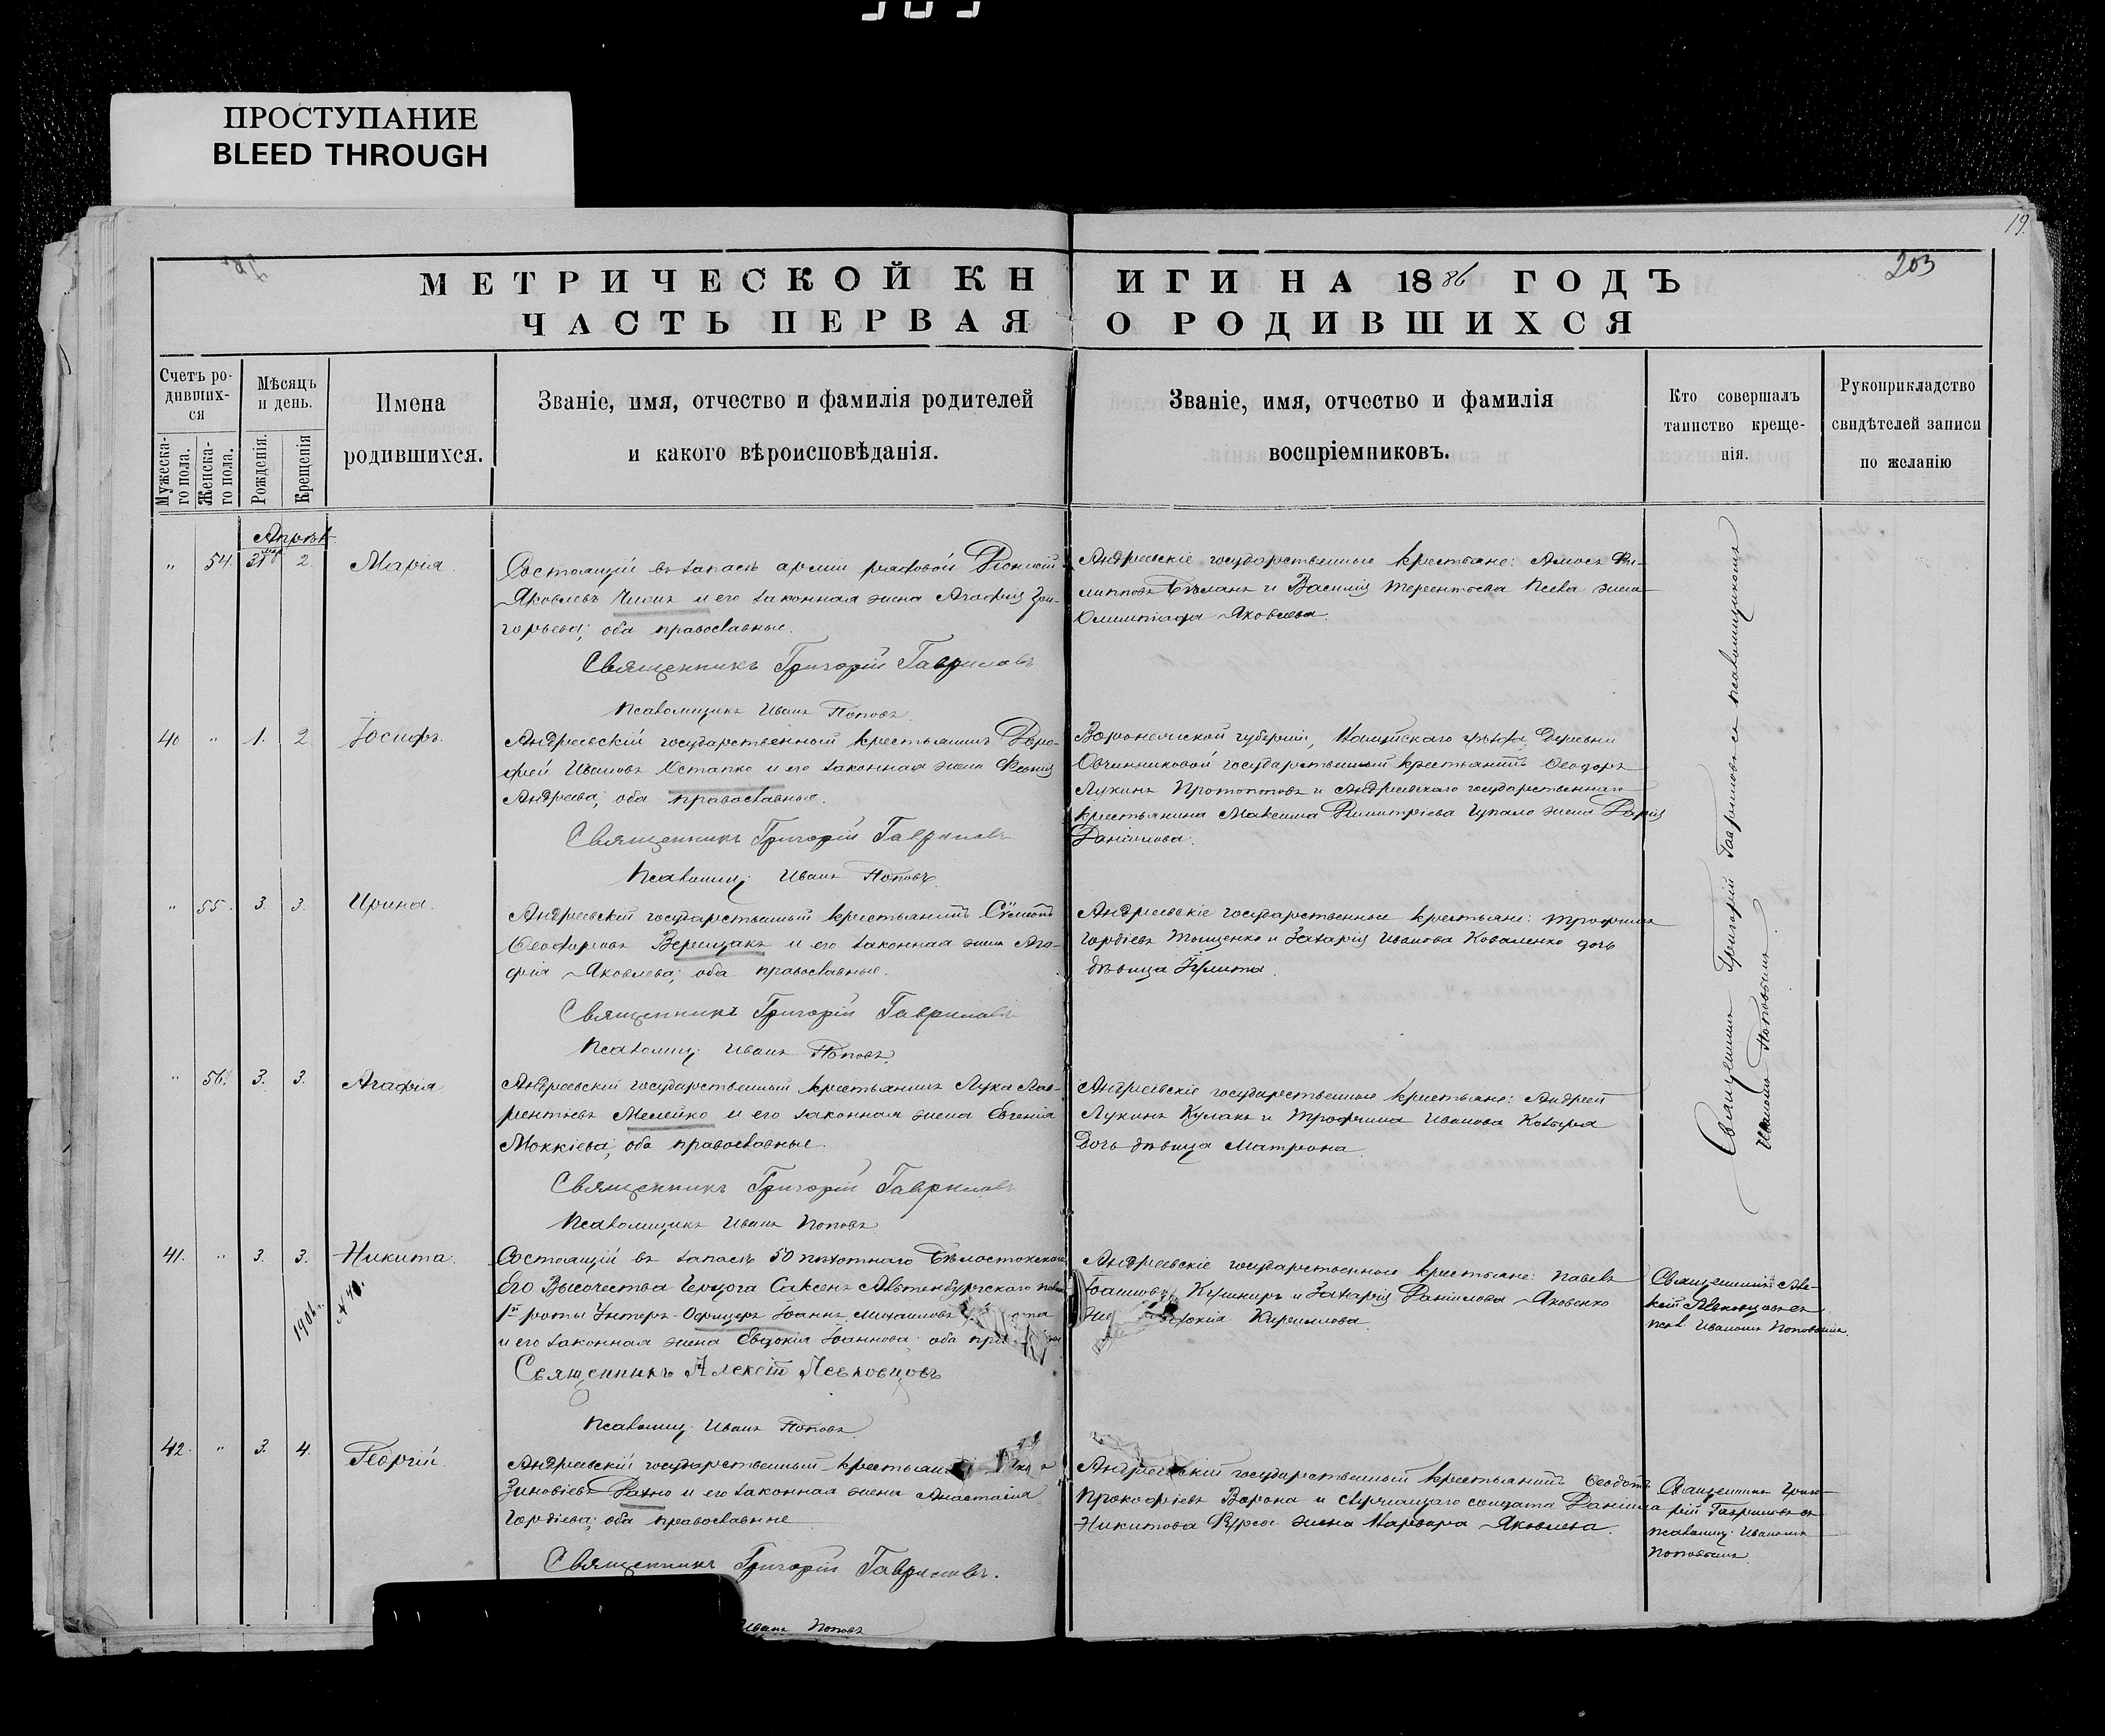 ПРОСТУПАНИЕ
BLEED THROUGH
19.
203
МЕТРИЧЕСКОЙ КНИГИ НА 1886 ГОДЪ
ЧАСТЬ ПЕРВАЯ О РОДИВШИХСЯ
Счетъ ро-
дивших-
ся
Мужеска-
го пола.
Женска-
го пола.
Мѣсяцъ
и день.
Рожденія.
Крещенія
Имена
родившихся.
Званіе, имя, отчество и фамилія родителей
и какого вѣроисповѣданія.
Званіе, имя, отчество и фамилія
воспріемниковъ.
Кто совершалъ
таинство креще-
нія.
Рукоприкладство
свидѣтелей записи
по желанію
" 54. 31 2. Марія.
Состоящій въ запасѣ арміи рядовой
Яковлевъ и его законная жена Агафія Гри-
горьева; оба православные.
Священникъ Григорій Гавриловъ
Псаломщикъ Иванъ Поповъ.
Андреевскіе государственные крестьяне: Амосъ Фи-
липповъ Бѣланъ и Василія Терентьева жена
Олимпіада Яковлева.
40 " 1. 2 Іосифъ.
Андреевскій государственный крестьянинъ Доро-
фей Ивановъ Остапко и его законная жена
Андреева; оба православные.
Священникъ Григорій Гавриловъ
Псаломщ. Иванъ Поповъ.
Воронежской губерніи, уѣзда, деревни
Овчинниковой государственный крестьянинъ Ѳеодоръ
Лукинъ Протопоповъ и Андреевскаго государственнаго
крестьянина Максима Димитріева Чупало жена Дарія
Даніилова.
" 55. 3. 3. Ирина.
Андреевскій государственный крестьянинъ Сѵмеонъ
Ѳеодоровъ Верещакъ и его законная жена Ага-
фія Яковлева; оба православные.
Священникъ Григорій Гавриловъ
Псаломщ. Иванъ Поповъ.
Андреевскіе государственные крестьяне: Трофимъ
Гордіевъ Тищенко и Захарія Иванова Коваленко дочь
дѣвица Іулита.
" 56. 3. 3. Агафія
Андреевскій государственный крестьянинъ Лука Лав-
рентіевъ Мелейко и его законная жена Евгенія
Моккіева; оба православные
Священникъ Григорій Гавриловъ
Псаломщикъ Иванъ Поповъ
Андреевскіе государственные крестьяне: Андрей
Лукинъ Кулакъ и Трофима Иванова Кобыря
дочь дѣвица Матрона
Священникъ Григорій Гавриловъ съ псаломщикомъ
Иваномъ Поповымъ.
41. " 3. 3. Никита.
1906 г.
Состоящій въ запасѣ 50 пѣхотнаго Бѣлостокскаго
Его Высочества Герцога Саксенъ Альтенбургскаго полка
1й роты Унтеръ-Офицеръ Іоаннъ Михайловъ
и его законная жена Евдокія Іоаннова; оба
Священникъ Алексій Левковцовъ
Псаломщ. Иванъ Поповъ
Андреевскіе государственные крестьяне: Павелъ
Іоанновъ Кушниръ и Захарія Даніилова Яковенко
Кириллова.
Священникъ Але-
ксій Левковцовъ съ
псал. Иваномъ Поповымъ.
42. " 3. 4. Георгій.
Андреевскій государственный
Зиновіевъ Рахно и его законная жена Анастасія
Гордіева; оба православные
Священникъ Григорій Гавриловъ.
Иванъ Поповъ
Андреевскій государственный крестьянинъ Ѳеодотъ
Прокофіевъ Ворона и служащаго солдата Даніила
Никитова жена Варвара Яковлева.
Священникъ Григо-
рій Гавриловъ съ
псаломщ. Иваномъ
Поповымъ.